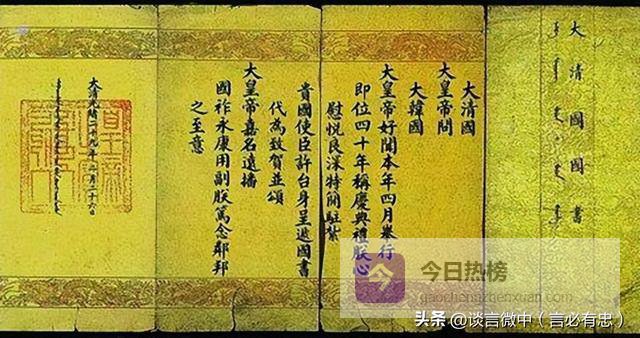 大清國國書
大清國
大皇帝問
大韓國
大皇帝好聞本年四月舉行
即位四十年稱慶典禮朕心
慰悅良深特簡駐紮
貴國使臣許台身呈遞國書
代為致賀並頌
大皇帝嘉名遠播
國祚永康用副朕篤念鄰邦
之至意
大清光緒二十九年
今
今日热榜
gaochongzhenxuan.com
头条 @谈言微中（言必有忠）